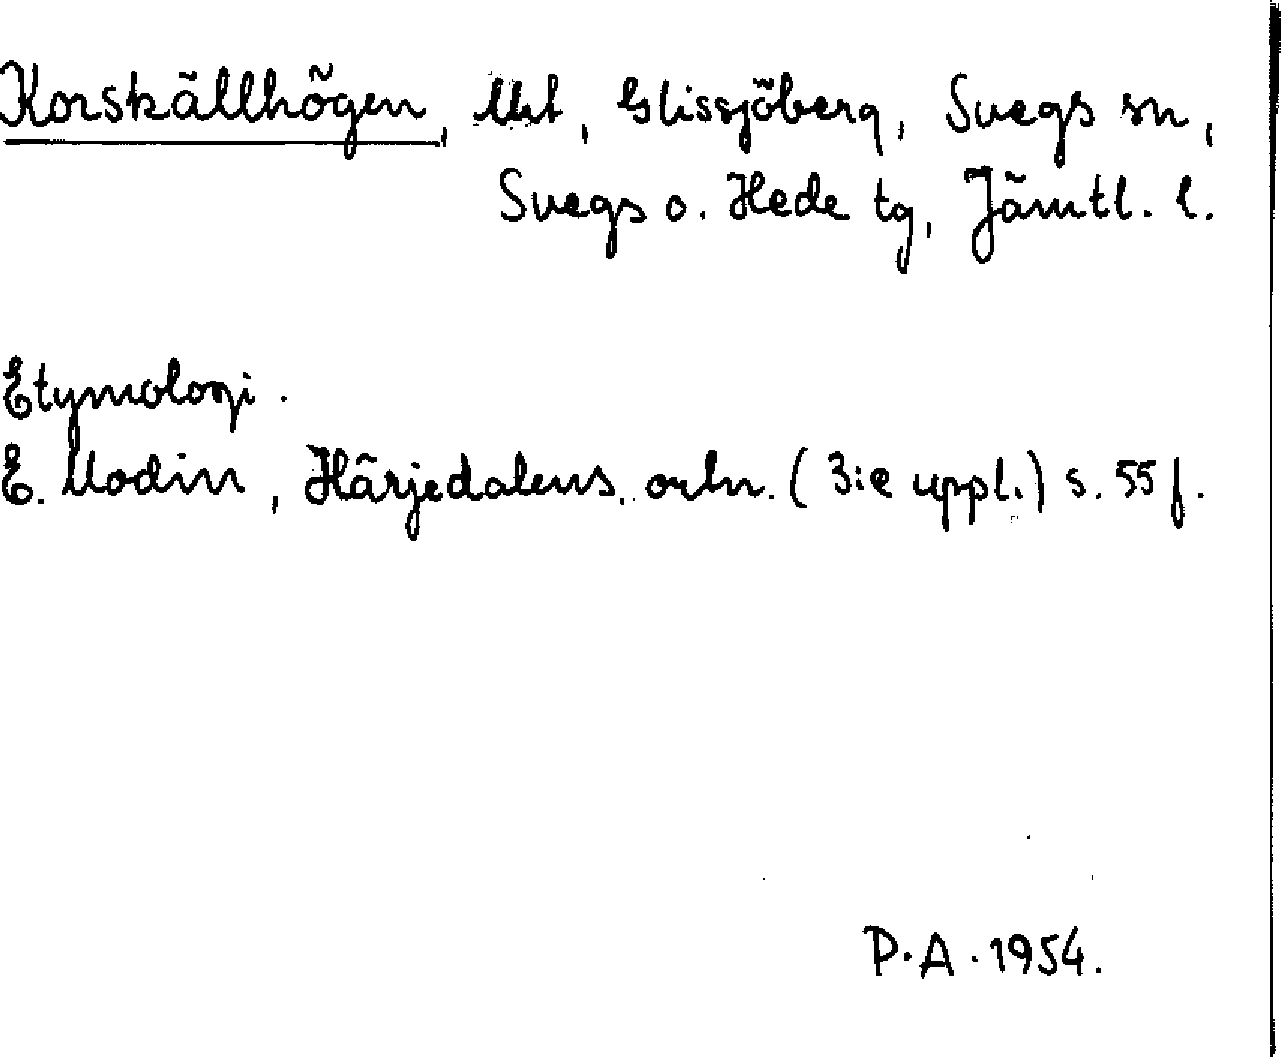 Korskällhögen, Mkt, Glissjöberg, Svegs sn,
Svegs o. Hede tg, Jämtl. l.
Etymologi.
E. Modin, Härjedalens ortn. (3:e uppl.) s. 55 f.
P.A. 1954.